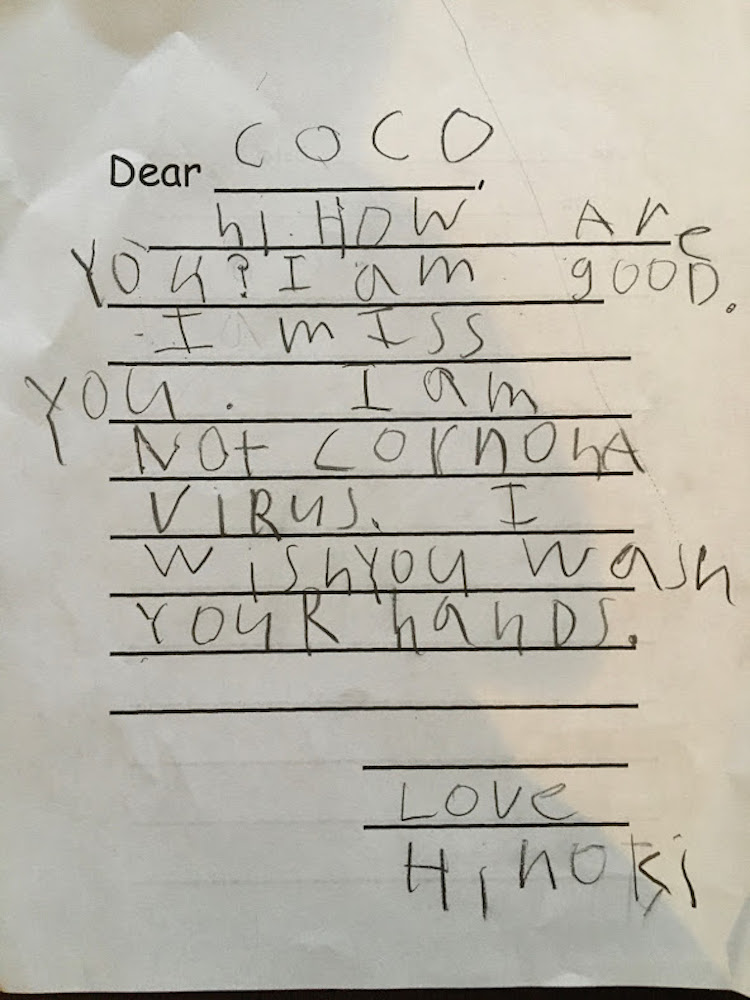 Dear COCO,
hi. HOW Are
YOu? I am gOOD.
I mIss
YOu. I am
NOt CorNOnA
ViRus. I
WishYOu Wash
YOuR hanDs.
LOVe
HiNOKi